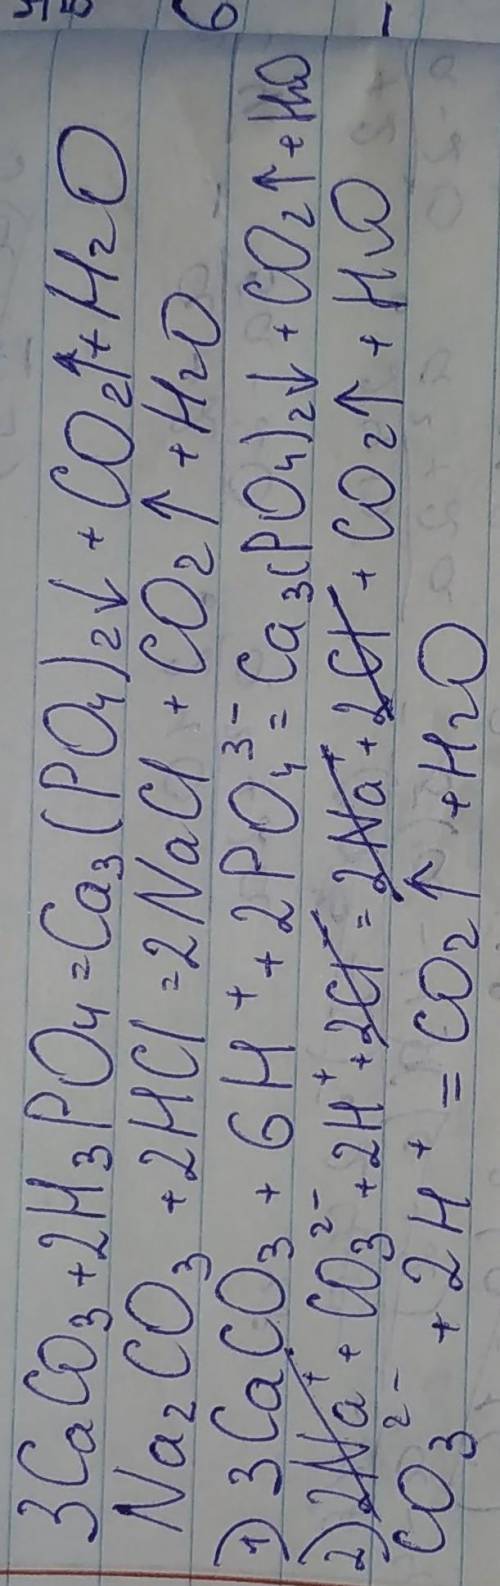 3CaCO₃ + 2H₃PO₄ = Ca₃(PO₄)₂↓ + CO₂↑ + H₂O
Na₂CO₃ + 2HCl = 2NaCl + CO₂↑ + H₂O
1) 3CaCO₃ + 6H⁺ + 2PO₄³⁻ = Ca₃(PO₄)₂↓ + CO₂↑ + H₂O
2) 2Na⁺ + CO₃²⁻ + 2H⁺ + 2Cl⁻ = 2Na⁺ + 2Cl⁻ + CO₂↑ + H₂O
CO₃²⁻ + 2H⁺ = CO₂↑ + H₂O